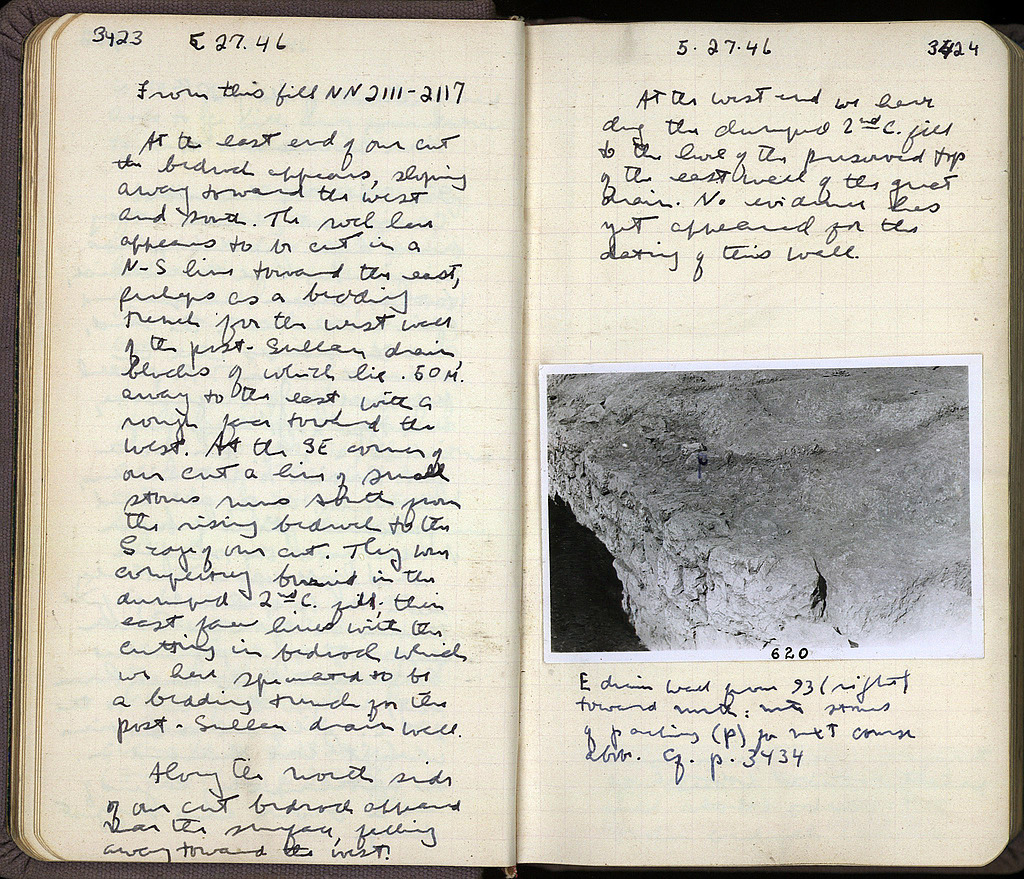 3423 5 27.46
From this fill NN 2111-2117
At the east end of our cut
the bedrock appears, sloping
away toward the west
and south. The rock has
appears to be cut in a
N-S line toward the east,
perhaps as a bedding
trench for the west wall
of the post-Sullan drain,
blocks of which lie .50 M.
away to the east with a
rough face toward the
west. At the SE corner of
our cut a line of small
stones runs south from
the rising bedrock to the
S edge of our cut. They were
completely buried in the
dumped 2nd C. fill. Their
east face lines with the
cutting in bedrock which
we have speculated to be
a bedding trench for the
post-Sullan drain wall.
Along the north side
of our cut bedrock appeared
near the surface, falling
away toward the west.
5.27.46 3424
At the west end we have
dug the dumped 2nd C. fill
to the level of the preserved top
of the east wall of the great
drain. No evidence has
yet appeared for the
dating of this wall.
P
620
E drain wall from 93 (right)
toward north: note stones
of packing (P) for next course
above. Cf. p. 3434